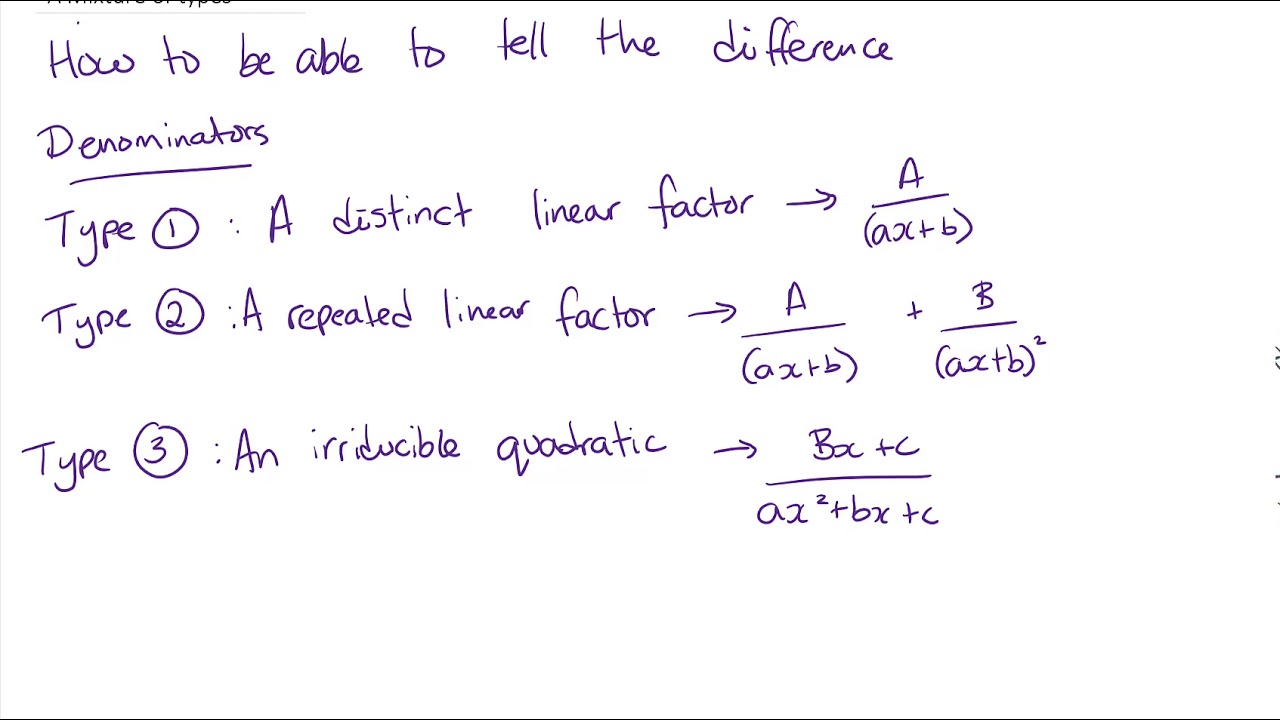 A Mixture of types
How to be able to tell the difference
Denominators
Type ① : A distinct linear factor → A/(ax+b)
Type ② : A repeated linear factor → A/(ax+b) + B/(ax+b)²
Type ③ : An irriducible quadratic → Bx+c/ax²+bx+c